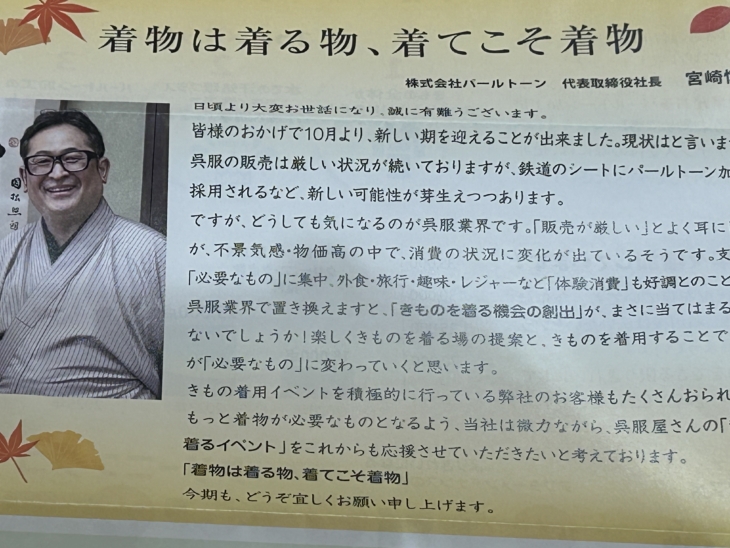 着物は着る物、着てこそ着物
株式会社パールトーン 代表取締役社長 宮崎
日頃より大変お世話になり、誠に有難うございます。
皆様のおかげで10月より、新しい期を迎えることが出来ました。現状はと言いま
呉服の販売は厳しい状況が続いておりますが、鉄道のシートにパールトーン加
採用されるなど、新しい可能性が芽生えつつあります。
ですが、どうしても気になるのが呉服業界です。「販売が厳しい」とよく耳に
が、不景気感・物価高の中で、消費の状況に変化が出ているそうです。支
「必要なもの」に集中、外食・旅行・趣味・レジャーなど「体験消費」も好調とのこと
呉服業界で置き換えますと、「きものを着る機会の創出」が、まさに当てはまる
ないでしょうか！楽しくきものを着る場の提案と、きものを着用することで
が「必要なもの」に変わっていくと思います。
きもの着用イベントを積極的に行っている弊社のお客様もたくさんおられ
もっと着物が必要なものとなるよう、当社は微力ながら、呉服屋さんの「
着るイベント」をこれからも応援させていただきたいと考えております。
「着物は着る物、着てこそ着物」
今期も、どうぞ宜しくお願い申し上げます。